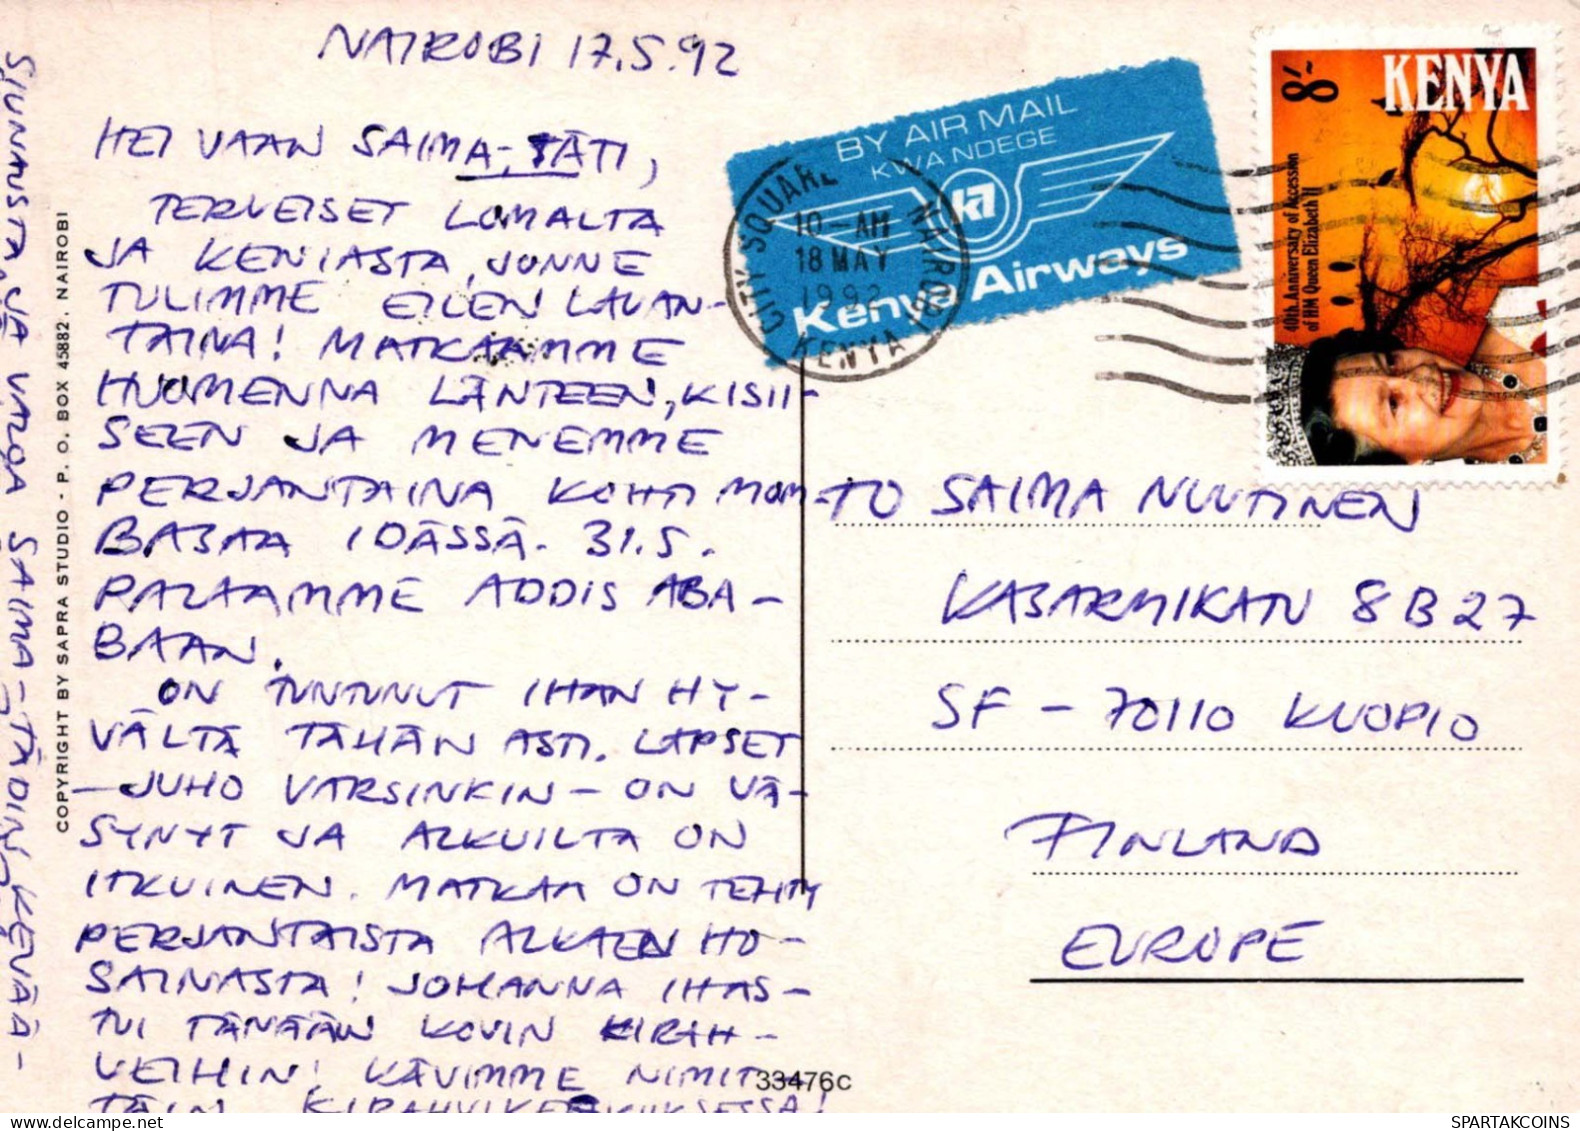 NAIROBI 17.5.92
HEI VAAN SAIMA-TÄTI,
TERVEISET LOMALTA
JA KENIASTA, JONNE
TULIMME EILEN LAUAN-
TAINA! MATKAAMME
HUOMENNA LÄNTEEN, KISII-
SEEN JA MENEMME
PERJANTAINA KOHTI MOM-
BASAA IDÄSSÄ. 31.5.
PALAAMME ADDIS ABA-
BAAN.
ON TUNTUNUT IHAN HY-
VÄLTÄ TÄHÄN ASTI. LAPSET
– JUHO VARSINKIN – ON VÄ-
SYNYT JA ALKUILTA ON
ITKUINEN. MATKAA ON TEHTY
PERJANTAISTA ALKAEN HO-
SAINASTA! JOHANNA IHAS-
TUI TÄNÄÄN KOVIN KIRAH-
VEIHIN! KÄVIMME NIMIT-
TÄIN KIRAHVIKESKUKSESSA!
SIUNAUSTA JA VALOA SAIMA-TÄDIN KEVÄÄ-
COPYRIGHT BY SAPRA STUDIO - P. O. BOX 45882, NAIROBI
BY AIR MAIL
KWA NDEGE
Kenya Airways
CITY SQUARE NAIROBI
10-AM
18 MAY
1992
KENYA
8/-
KENYA
40th Anniversary of Accession
of HM Queen Elizabeth II
TO SAIMA NUUTINEN
KASARMIKATU 8 B 27
SF – 70110 KUOPIO
FINLAND
EUROPE
33476c
SPARTAKCOINS